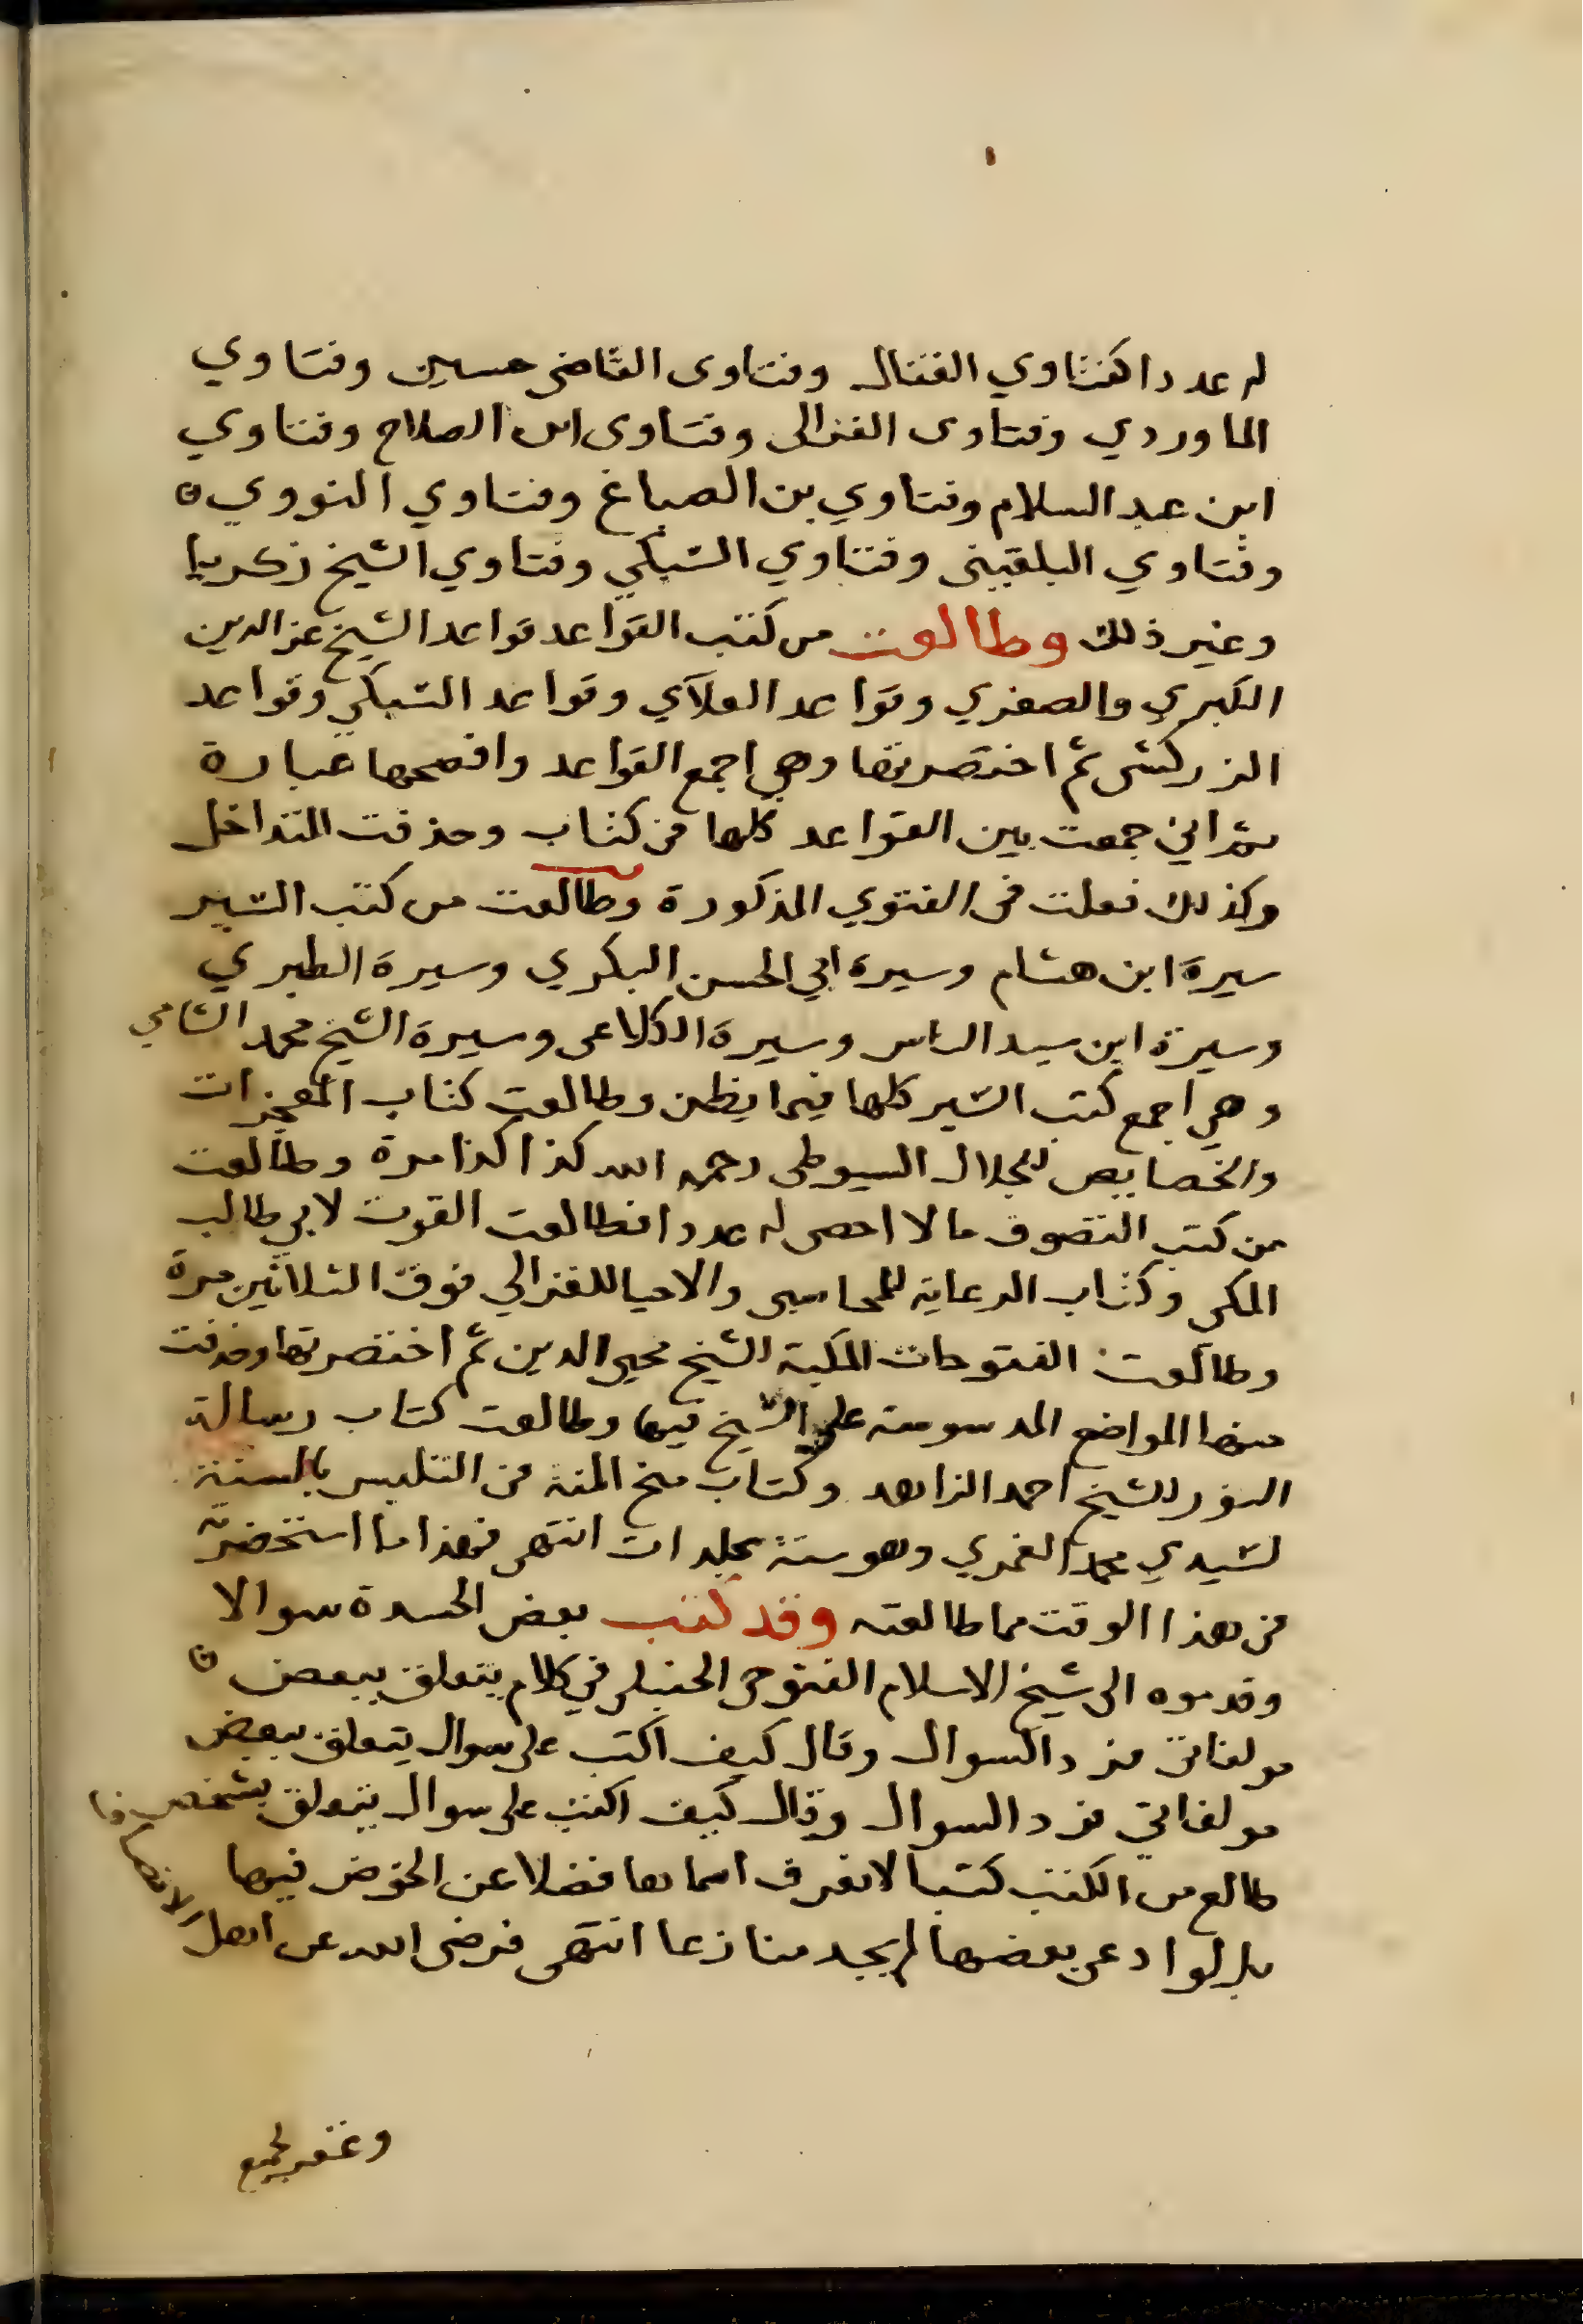 له عددا كفتاوي القفال وفتاوى القاضى حسين وفتاوي
الماوردي وفتاوى الغزالى وفتاوى ابن الصلاح وفتاوي
ابن عبد السلام وفتاوي بن الصباغ وفتاوي النووي
وفتاوي البلقينى وفتاوي السبكي وفتاوي الشيخ زكريا
وغير ذلك وطالعت من كتب القواعد قواعد الشيخ عز الدين
الكبري والصغري وقواعد العلآي وقواعد السبكي وقواعد
الزركشى ثم اختصرتها وهي اجمع القواعد وافصحها عبارة
ثم اني جمعت بين القواعد كلها في كتاب وحذفت المتداخل
وكذلك فعلت فى الفتوي المذكورة وطالعت من كتب السير
سيرة ابن هشام وسيرة ابي الحسن البكري وسيرة الطبري
وسيرة ابن سيد الناس وسيرة الكلاعى وسيرة الشيخ محمد الشامي
وهي اجمع كتب السير كلها فيما يظن وطالعت كتاب المعجزات
والخصايص للجلال السيوطى رحمه الله كذا كذا مرة وطالعت
من كتب التصوف ما لا احصى له عددا فطالعت القوت لابى طالب
المكى وكتاب الرعاية للمحاسبى والاحيا للغزالي فوق الثلاثين مرة
وطالعت الفتوحات المكية الشيخ محيى الدين ثم اختصرتها وحذفت
منها المواضع المدسوسة على الشيخ فيها وطالعت كتاب رسالة
النور للشيخ احمد الزاهد وكتاب منح المنه فى التلبس بالسنة
لسيدي محمد الغمري وهو ستة مجلدات انتهى فهذا ما استحضرته
فى هذا الوقت مما طالعته وقد كتب بعض الحسدة سوالا
وقدموه الى شيخ الاسلام الفتوحى الحنبلى في كلام يتعلق ببعض
مولفاتى فرد السوال وقال كيف اكتب على سوال يتعلق ببعض
مولفاتي فرد السوال وقال كيف اكتب على سوال يتعلق بشخص فا
طالع من الكتب كتبا لا نعرف اسماها فضلا عن الخوض فيها
بل لو ادعى بعضها لم يجد منازعا انتهى فرضى الله عن اهل الانصاف
وغفر لجميع